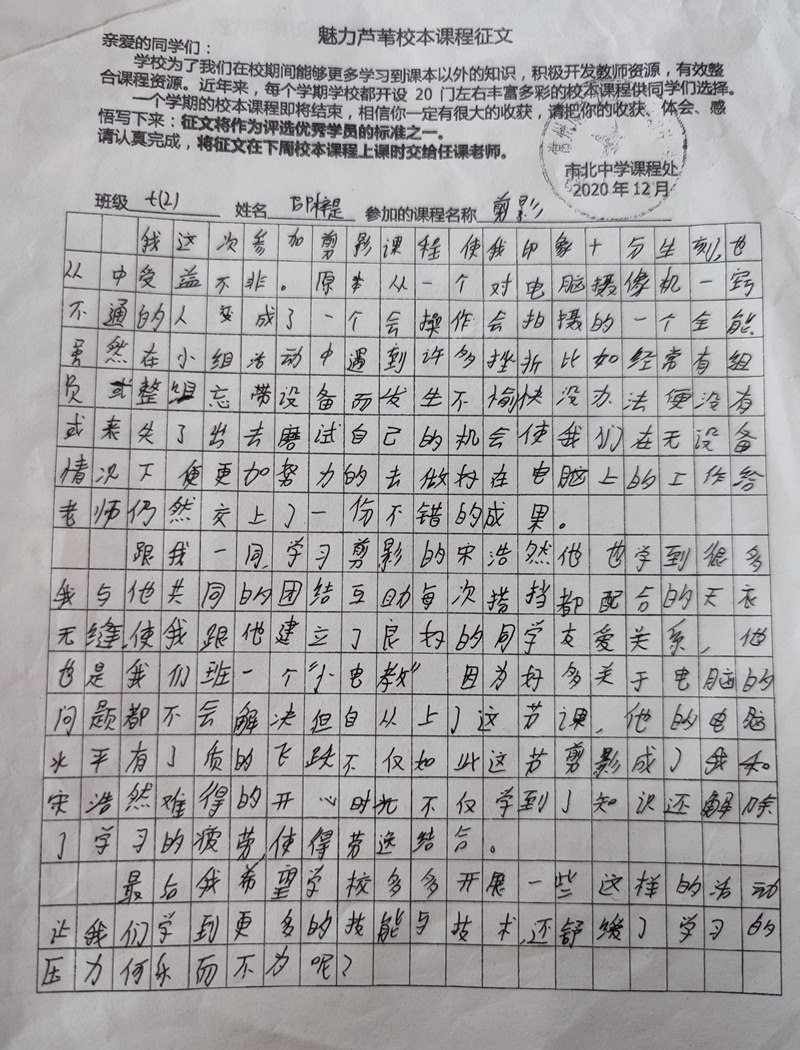 魅力芦苇校本课程征文
亲爱的同学们：
学校为了我们在校期间能够更多学习到课本以外的知识，积极开发教师资源，有效整
合课程资源。近年来，每个学期学校都开设 20 门左右丰富多彩的校本课程供同学们选择。
一个学期的校本课程即将结束，相信你一定有很大的收获，请把你的收获、体会、感
悟写下来：征文将作为评选优秀学员的标准之一。
请认真完成，将征文在下周校本课程上课时交给任课老师。
市北中学课程处
2020 年 12 月
班级 七(2) 姓名 参加的课程名称 剪影
我这次参加剪影课程使我印象十分生刻，也
从中受益不非。原本从一个对电脑摄像机一窍
不通的人变成了一个会操作会拍摄的一个全能
虽然在小组活动中遇到许多挫折比如经常有组
员或整组忘带设备而发生不愉快没办法便没有
或来失了出去磨试自己的机会使我们在无设备
情况下便更加努力的去做好在电脑上的工作给
老师仍然交上了一份不错的成果。
跟我一同学习剪影的宋浩然他也学到很多
我与他共同的团结互助每次搭挡都配合的天衣
无缝，使我跟他建立了良好的同学友爱关系，他
也是我们班一个“小电教”因为好多关于电脑的
问题都不会解决但自从上了这节课，他的电脑
水平有了质的飞跃不仅如此这节剪影成了我和
宋浩然难得的开心时光不仅学到了知识还解除
了学习的疲劳，使得劳逸结合。
最后我希望学校多多开展一些这样的活动
让我们学到更多的技能与技术，还舒缓了学习的
压力何乐而不为呢？